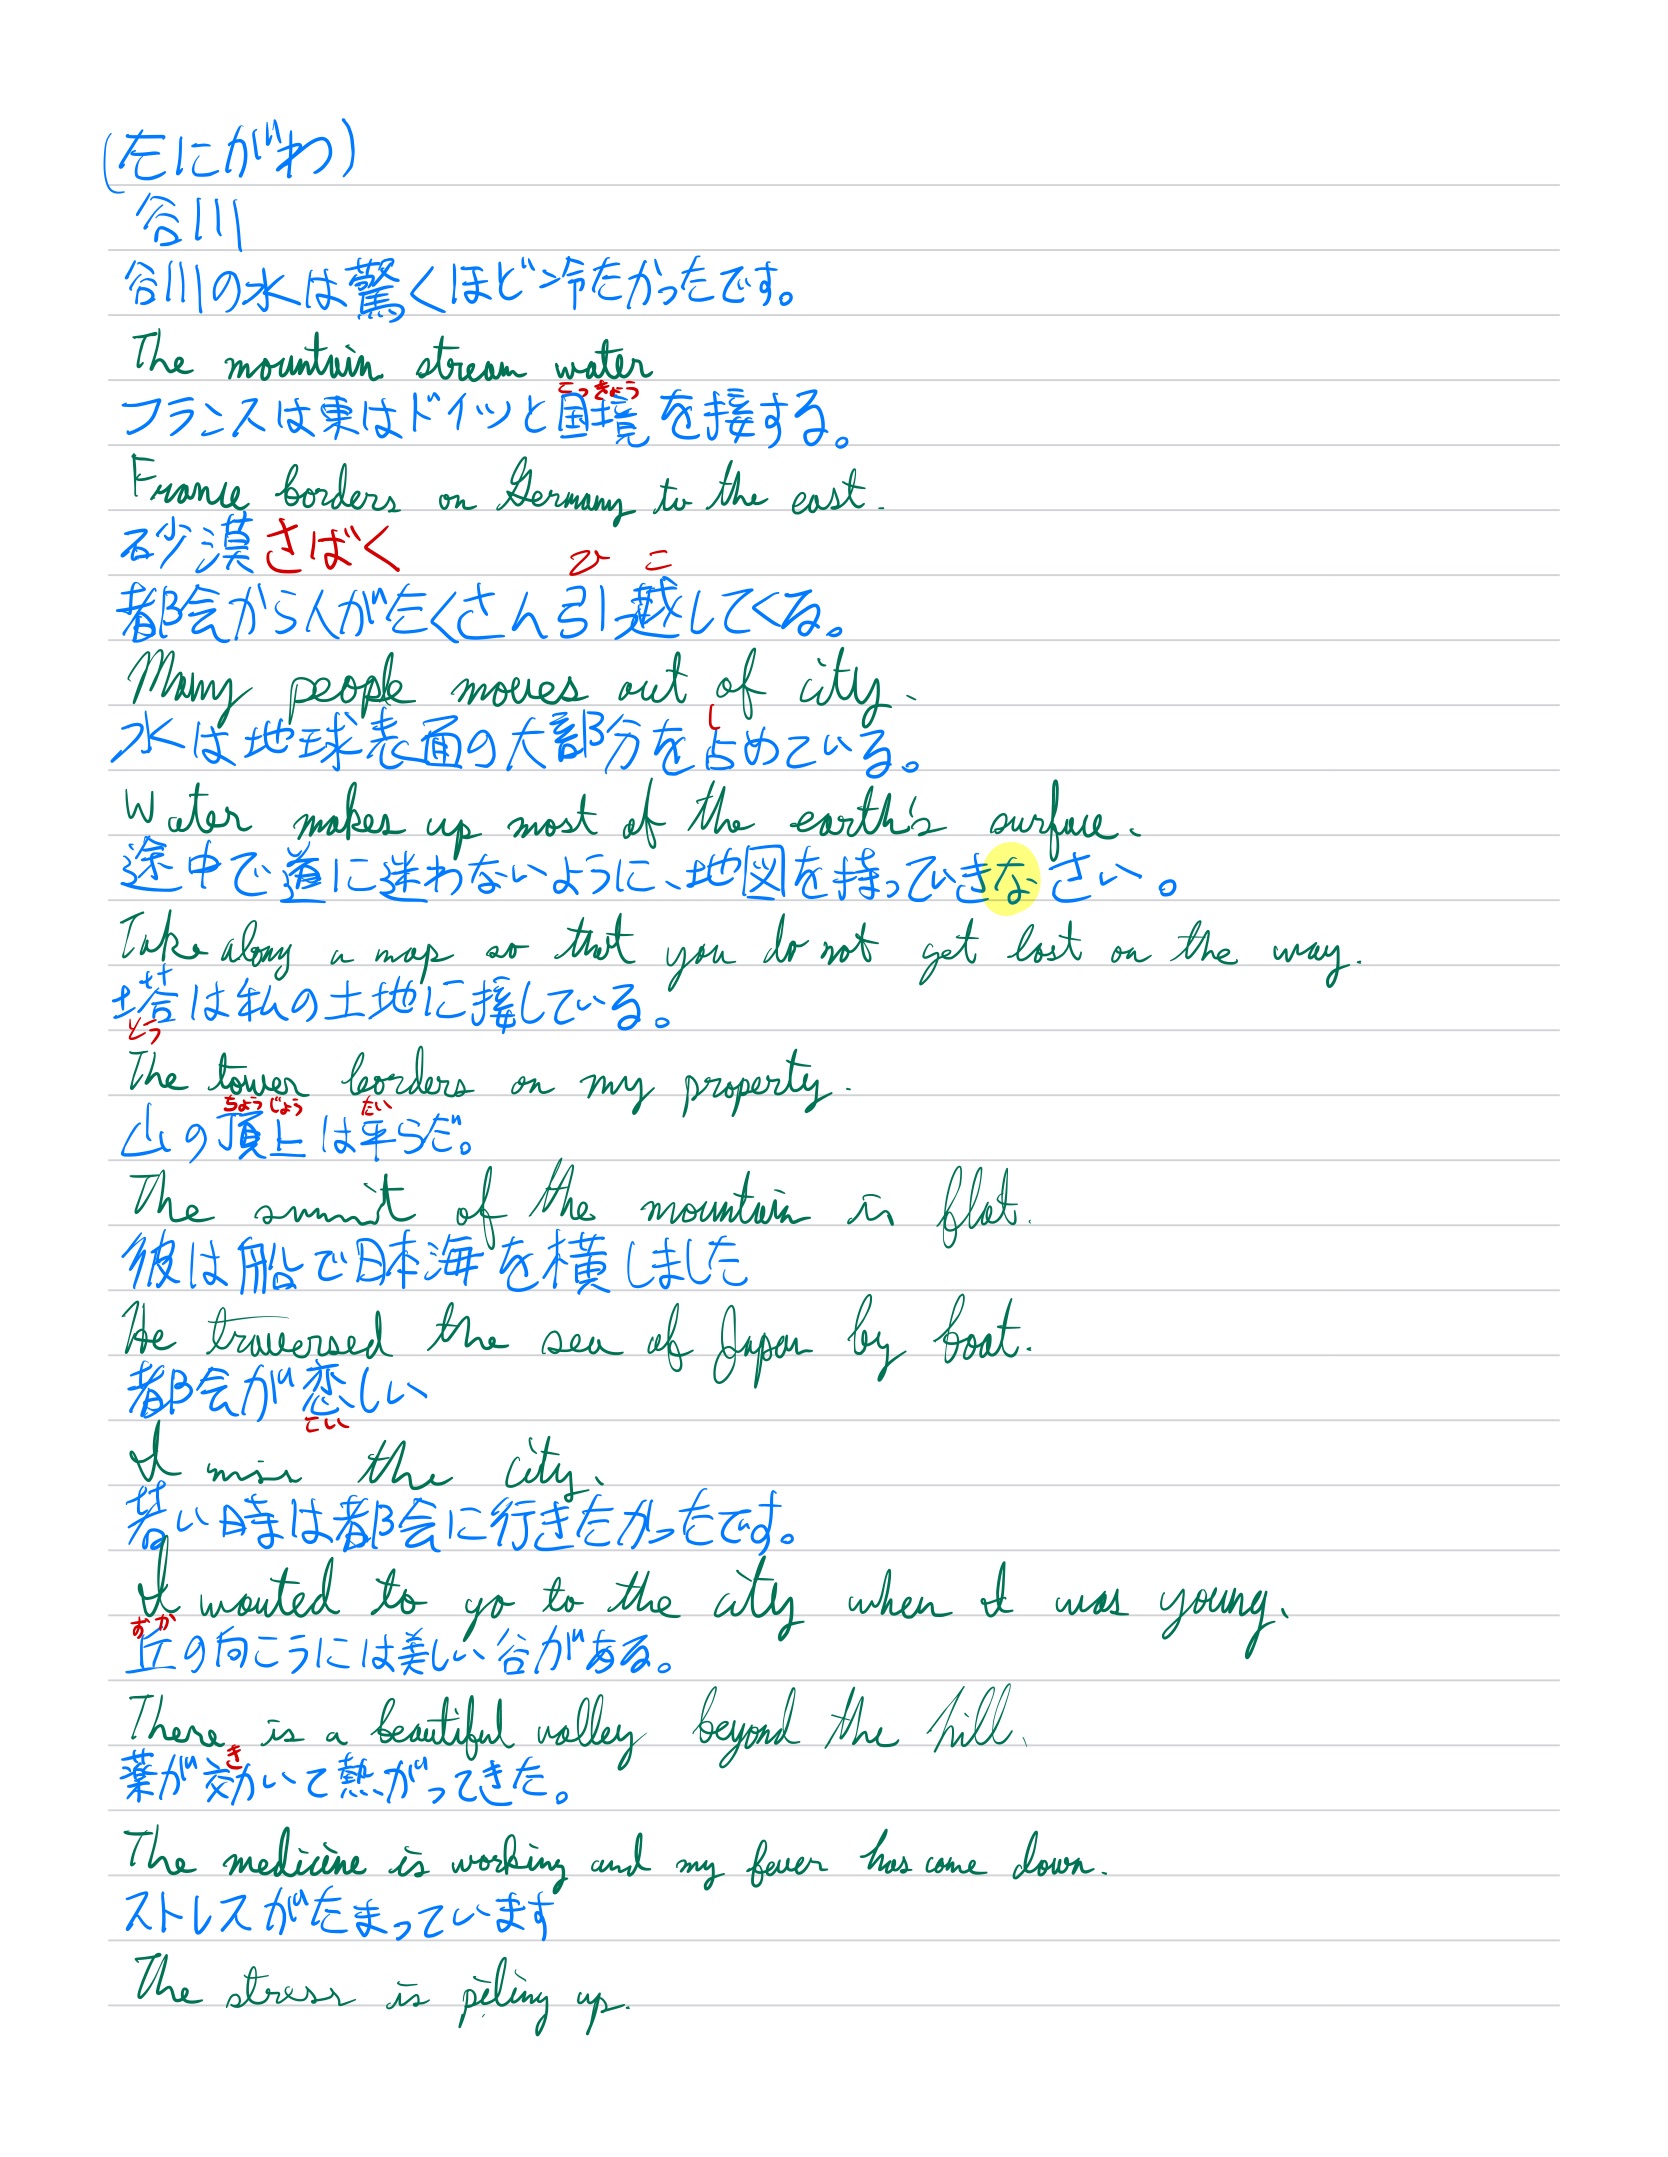 (たにがわ)
谷川
谷川の水は驚くほど冷たかったです。
The mountain stream water
こっきょう
フランスは東はドイツと国境を接する。
France borders on Germany to the east.
砂漠 さばく
ひ こ
都会から人がたくさん引越してくる。
Many people moves out of city.
し
水は地球表面の大部分を占めている。
Water makes up most of the earth's surface.
途中で道に迷わないように、地図を持っていきなさい。
Take along a map so that you do not get lost on the way.
塔は私の土地に接している。
とう
The tower borders on my property.
ちょうじょう たい
山の頂上は平らだ。
The summit of the mountain is flat.
彼は船で日本海を横しました
He traversed the sea of Japan by boat.
都会が恋しい
こい
I miss the city.
若い時は都会に行きたかったです。
I wanted to go to the city when I was young.
おか
丘の向こうには美しい谷がある。
There is a beautiful valley beyond the hill.
き
薬が効いて熱がってきた。
The medicine is working and my fever has come down.
ストレスがたまっています
The stress is piling up.